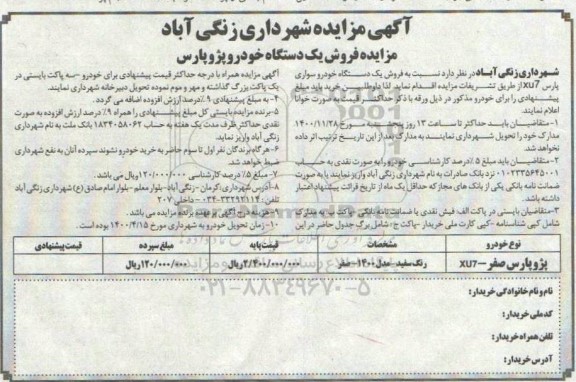 آگهی مزایده شهرداری زنگی آباد
مزایده فروش یک دستگاه خودرو پژو پارس
شهرداری زنگی آباد در نظر دارد نسبت به فروش یک دستگاه خودرو سواری
پارس XU7 از طریق تشریفات مزایده اقدام نماید لذا داوطلبین خرید باید مبلغ
پیشنهادی را برای خودرو مذکور در ذیل ورقه با ذکر حداکثر قیمت به صورت خوانا
اعلام نمایند
۱- متقاضیان باید حداکثر تا ساعت ۱۳ روز پنجشنبه مورخ ۱۴۰۰/۱۱/۲۸
مدارک خود را تحویل شهرداری نمایند به مدارک بعد از این تاریخ ترتیب اثر داده
نخواهد شد.
۲- متقاضیان باید مبلغ ۵٪ درصد کارشناسی خودرو را به صورت نقدی به حساب
۰۱۰۲۲۳۵۶۴۵۰۰۱ نزد بانک صادرات به نام شهرداری زنگی آباد واریز نمایند یا به صورت
ضمانت نامه بانکی یکی از بانک های مجاز که حداقل یک ماه از تاریخ قرائت پیشنهاد اعتبار
داشته باشد.
۳- متقاضیان بایستی در پاکت الف فیش نقدی یا ضمانت نامه بانکی - پاکت ب: مدارک
شامل کپی شناسنامه - کپی کارت ملی خریدار - پاکت ج: شامل برگ جدول حاضر در این
آگهی مزایده همراه با درجه حداکثر قیمت پیشنهادی برای خودرو - سه پاکت بایستی در
یک پاکت بزرگ گذاشته و مهر و موم نموده تحویل دبیرخانه شهرداری نمایند.
۴- به مبلغ پیشنهادی ۹٪ درصد ارزش افزوده اضافه می گردد.
۵- برنده مزایده بایستی کل مبلغ پیشنهادی را همراه ۹٪ درصد ارزش افزوده به صورت
نقدی حداکثر ظرف مدت یک هفته به حساب ۱۸۳۴۰۵۸۰۶۲ بانک ملت به نام شهرداری
زنگی آباد واریز نماید.
۶- هرگاه برندگان نفر اول تا سوم حاضر به خرید خودرو نشوند سپرده آنان به نفع شهرداری
ضبط خواهد شد.
۷- مبلغ ۵٪ درصد کارشناسی ۱۲۰/۰۰۰/۰۰۰ ریال می باشد.
۸- آدرس شهرداری: کرمان - زنگی آباد - بلوار معلم - بلوار امام صادق (ع) شهرداری زنگی آباد
تلفن: ۳۳۲۹۲۱۱۴-۰۳۴ داخلی ۲۰۷
۹- هزینه درج آگهی بر عهده برنده مزایده می باشد.
۱۰- زمان تحویل خودرو به شهرداری مورخ ۱۴۰۰/۴/۱۵ بوده است.
نوع خودرو مشخصات قیمت پایه مبلغ سپرده قیمت پیشنهادی
پژو پارس صفر - XU7 رنگ سفید - مدل ۱۴۰۰ - صفر ۲/۴۰۰/۰۰۰/۰۰۰ ریال ۱۲۰/۰۰۰/۰۰۰ ریال
۰۲۱-۸۸۳۴۹۶۷۰-۵
نام و نام خانوادگی خریدار:
کد ملی خریدار:
تلفن همراه خریدار:
آدرس خریدار: